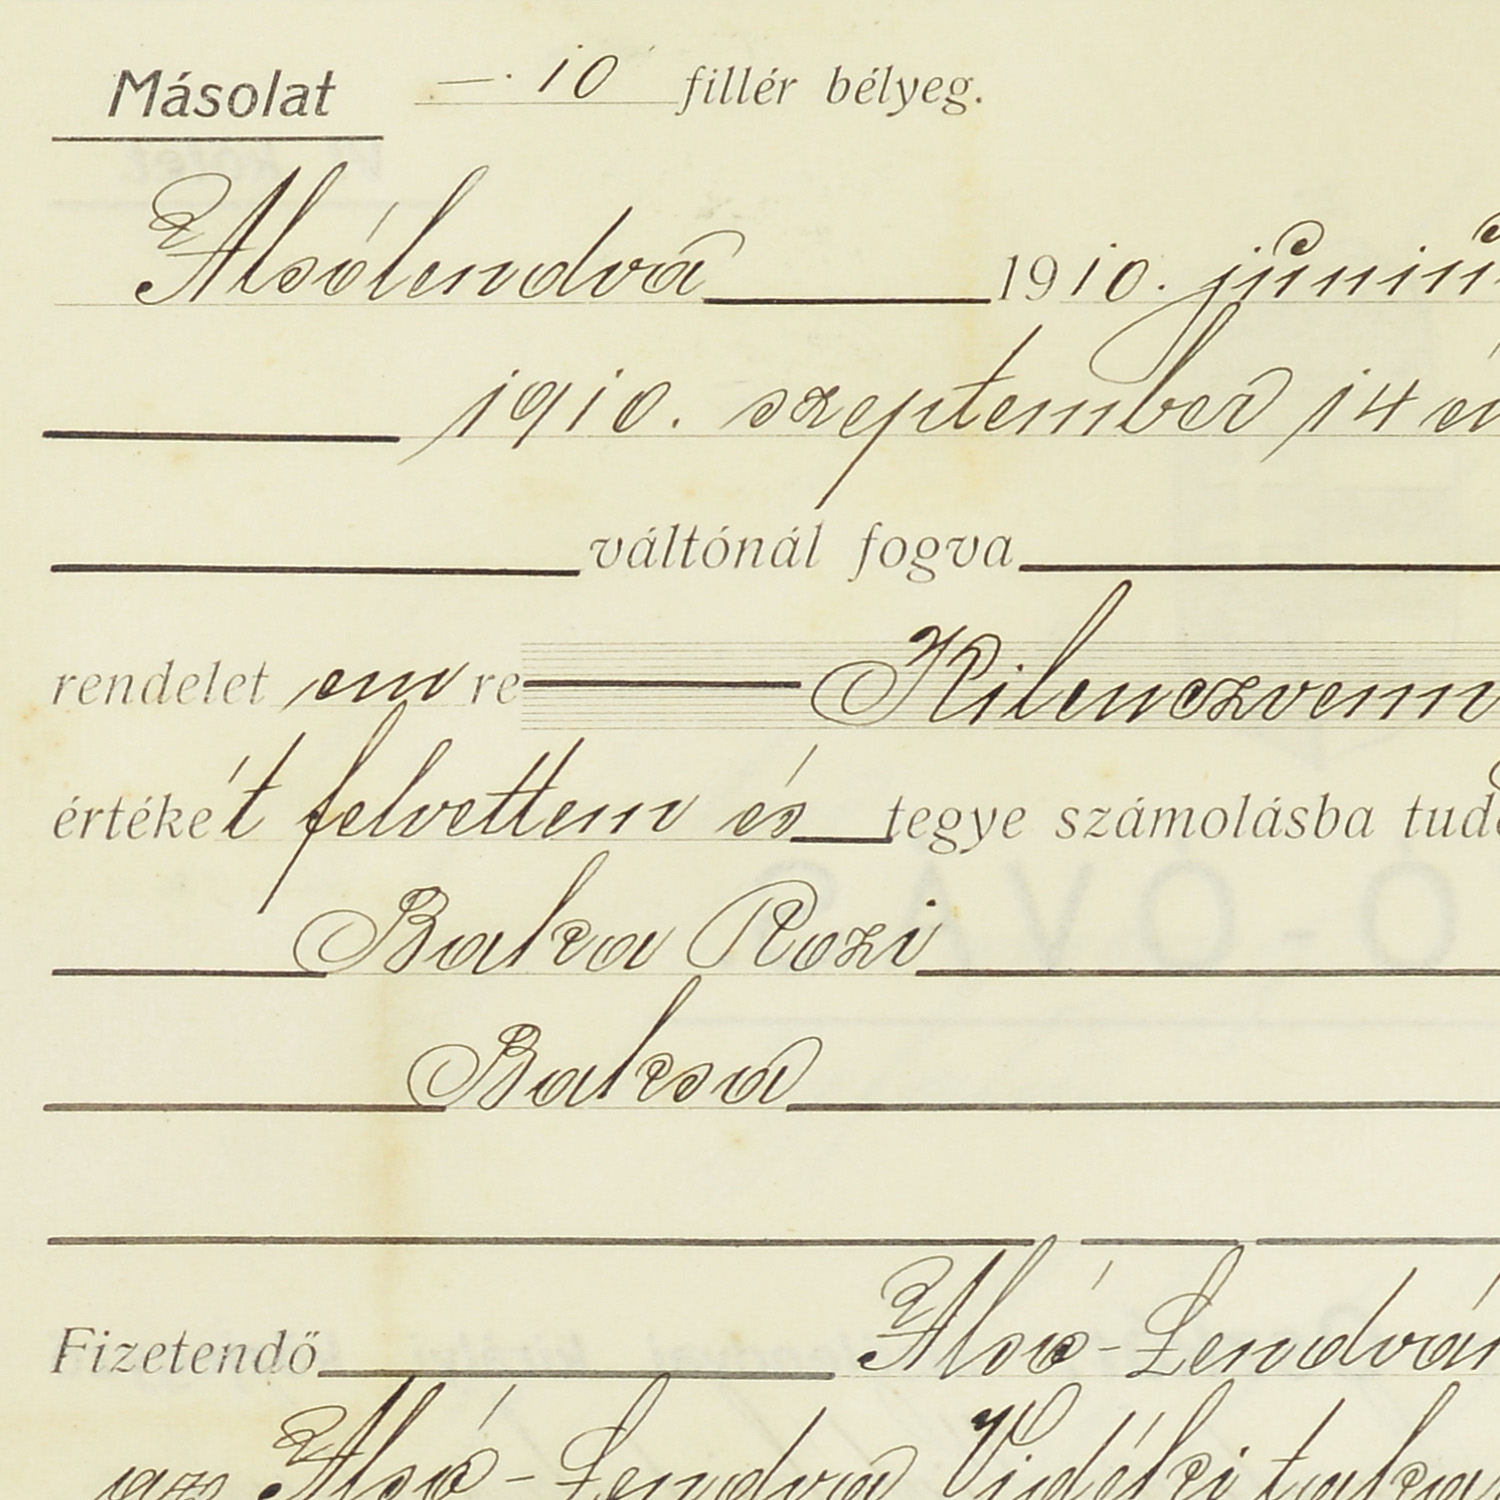 Másolat —. 10 fillér bélyeg.
Alsólendva 1910. június
1910. szeptember 14 én
váltónál fogva
rendelet em re Kilenczvenn
értékét felvettem és tegye számolásba tud
Baka Rozi
Baksa
Fizetendő Alsó-Lendván
az Alsó-Lendva Vidéki taka